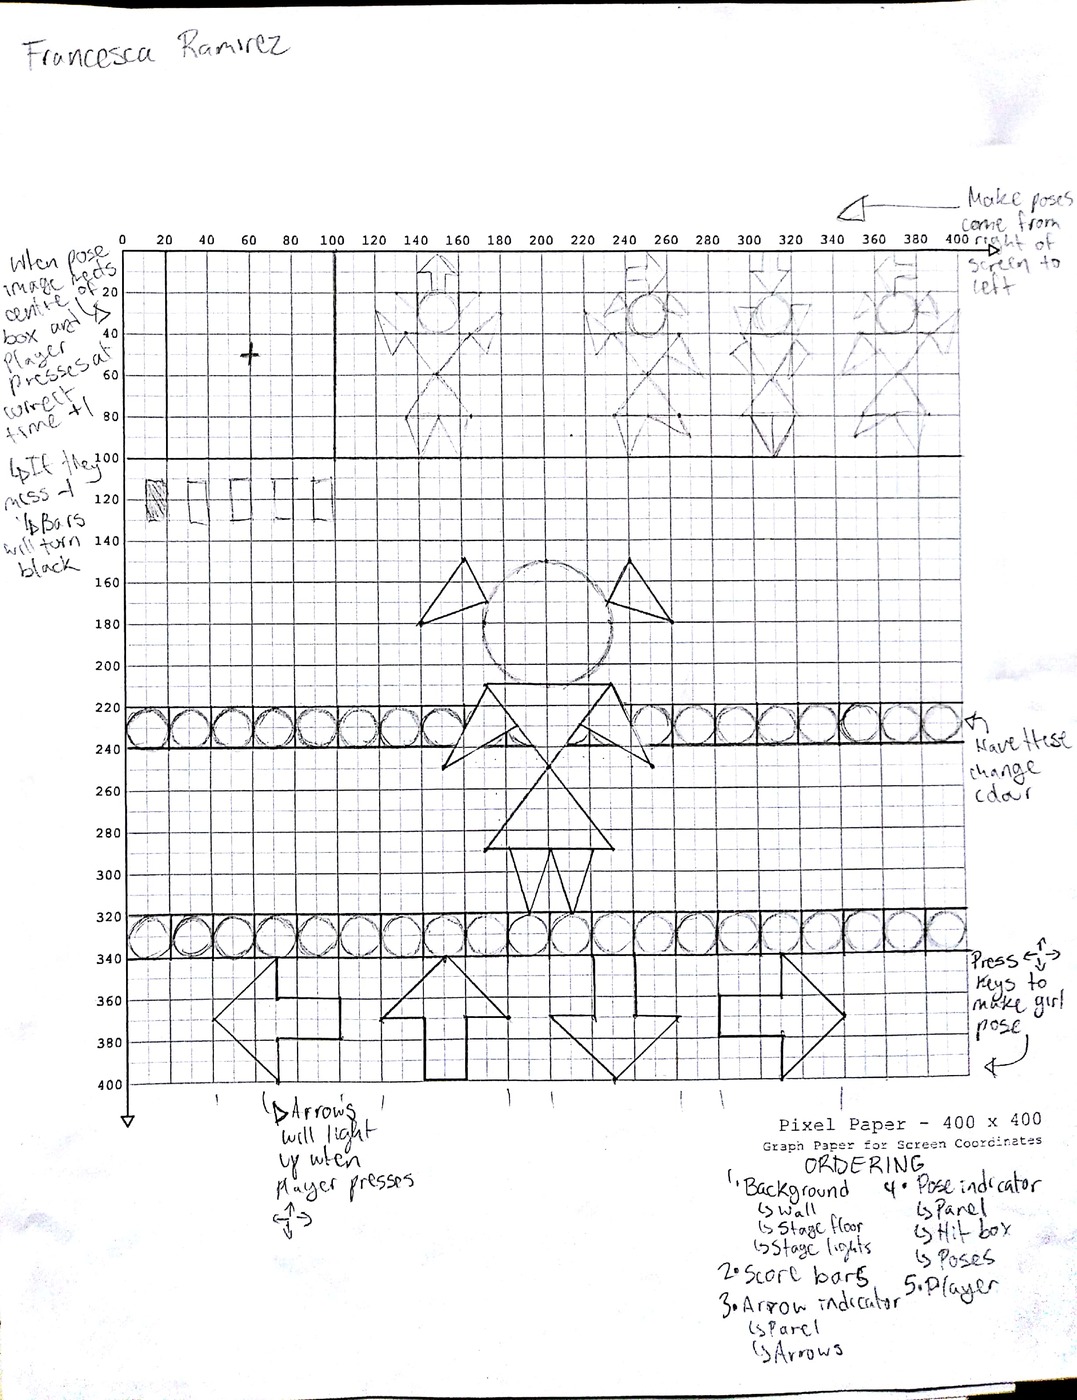 Francesca Ramirez
Make poses
come from
right of
screen to
left
0 20 40 60 80 100 120 140 160 180 200 220 240 260 280 300 320 340 360 380 400
20
40
60
80
100
120
140
160
180
200
220
240
260
280
300
320
340
360
380
400
When pose
image meets
centre of
box and
player
presses at
correct
time +1
↳If they
miss -1
↳Bars
will turn
black
Have these
change
colour
Press
keys to
make girl
pose
Arrows
will light
up when
player presses
Pixel Paper - 400 x 400
Graph Paper for Screen Coordinates
ORDERING
1. Background
↳ Wall
↳ Stage floor
↳ Stage lights
2. Score bars
3. Arrow indicator
↳ Panel
↳ Arrows
4. Pose indicator
↳ Panel
↳ Hit box
↳ Poses
5. Player